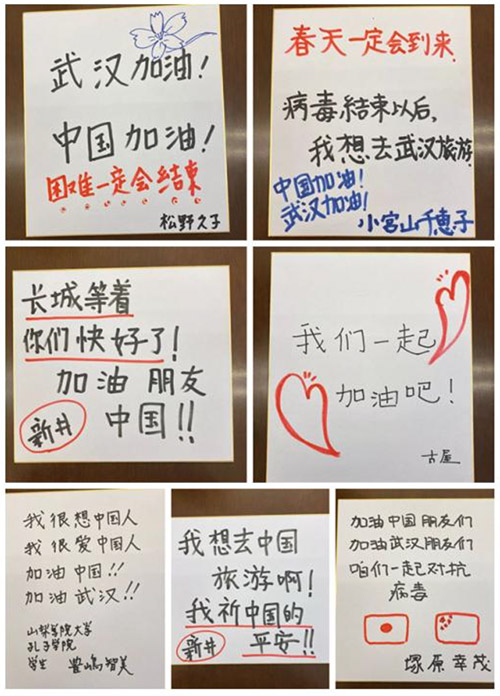 武汉加油!
中国加油!
困难一定会結束
松野久子
春天一定会到来.
病毒結束以后,
我想去武汉旅游.
中国加油!
武汉加油!
小宮山千穂子
长城等着
你们快好了!
加油 朋友
中国!!
新井
我们一起
加油吧!
古屋
我很想中国人
我很爱中国人
加油 中国!!
加油 武汉!!
山梨学院大学
孔子学院
学生 豊嶋智美
我想去中国
旅游啊!
我祈中国的
平安!!
新井
加油中国朋友们
加油武汉朋友们
咱们一起对抗
病毒
塚原幸茂